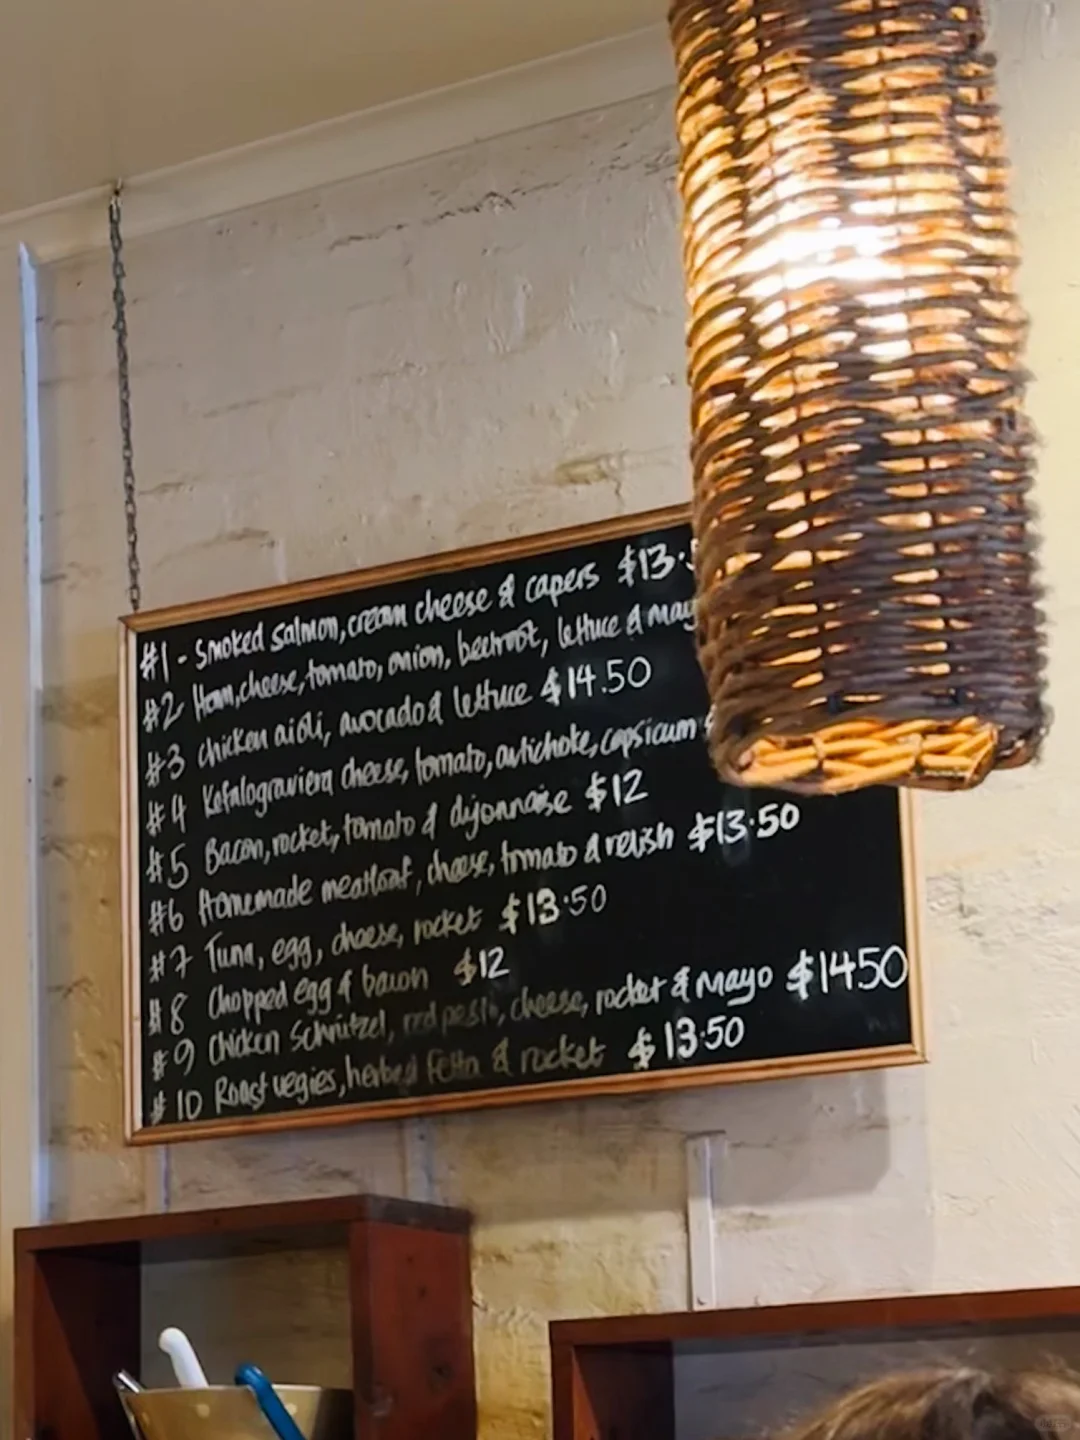 #1 - Smoked Salmon, cream cheese & capers $13.5
#2 Ham, cheese, tomato, onion, beetroot, lettuce & may
#3 chicken aioli, avocado & lettuce $14.50
#4 Kefalograviera cheese, tomato, artichoke, capsicum
#5 Bacon, rocket, tomato & dijonnaise $12
#6 Homemade meatloaf, cheese, tomato & relish $13.50
#7 Tuna, egg, cheese, rocket $13.50
#8 Chopped egg & bacon $12
#9 Chicken Schnitzel, red pesto, cheese, rocket & Mayo $1450
#10 Roast vegies, herbed fetta & rocket $13.50